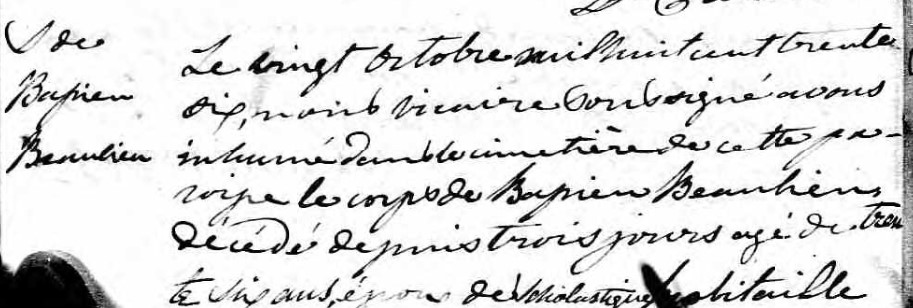 S de
Bapien
Beaulieu
Le vingt octobre mil huit cent trente
six, nous vicaire soussigné avons
inhumé dans le cimetière de cette pa-
roisse le corps de Bapien Beaulieu,
décédé depuis trois jours agé de tren
te six ans, époux de Scholastique Robitaille